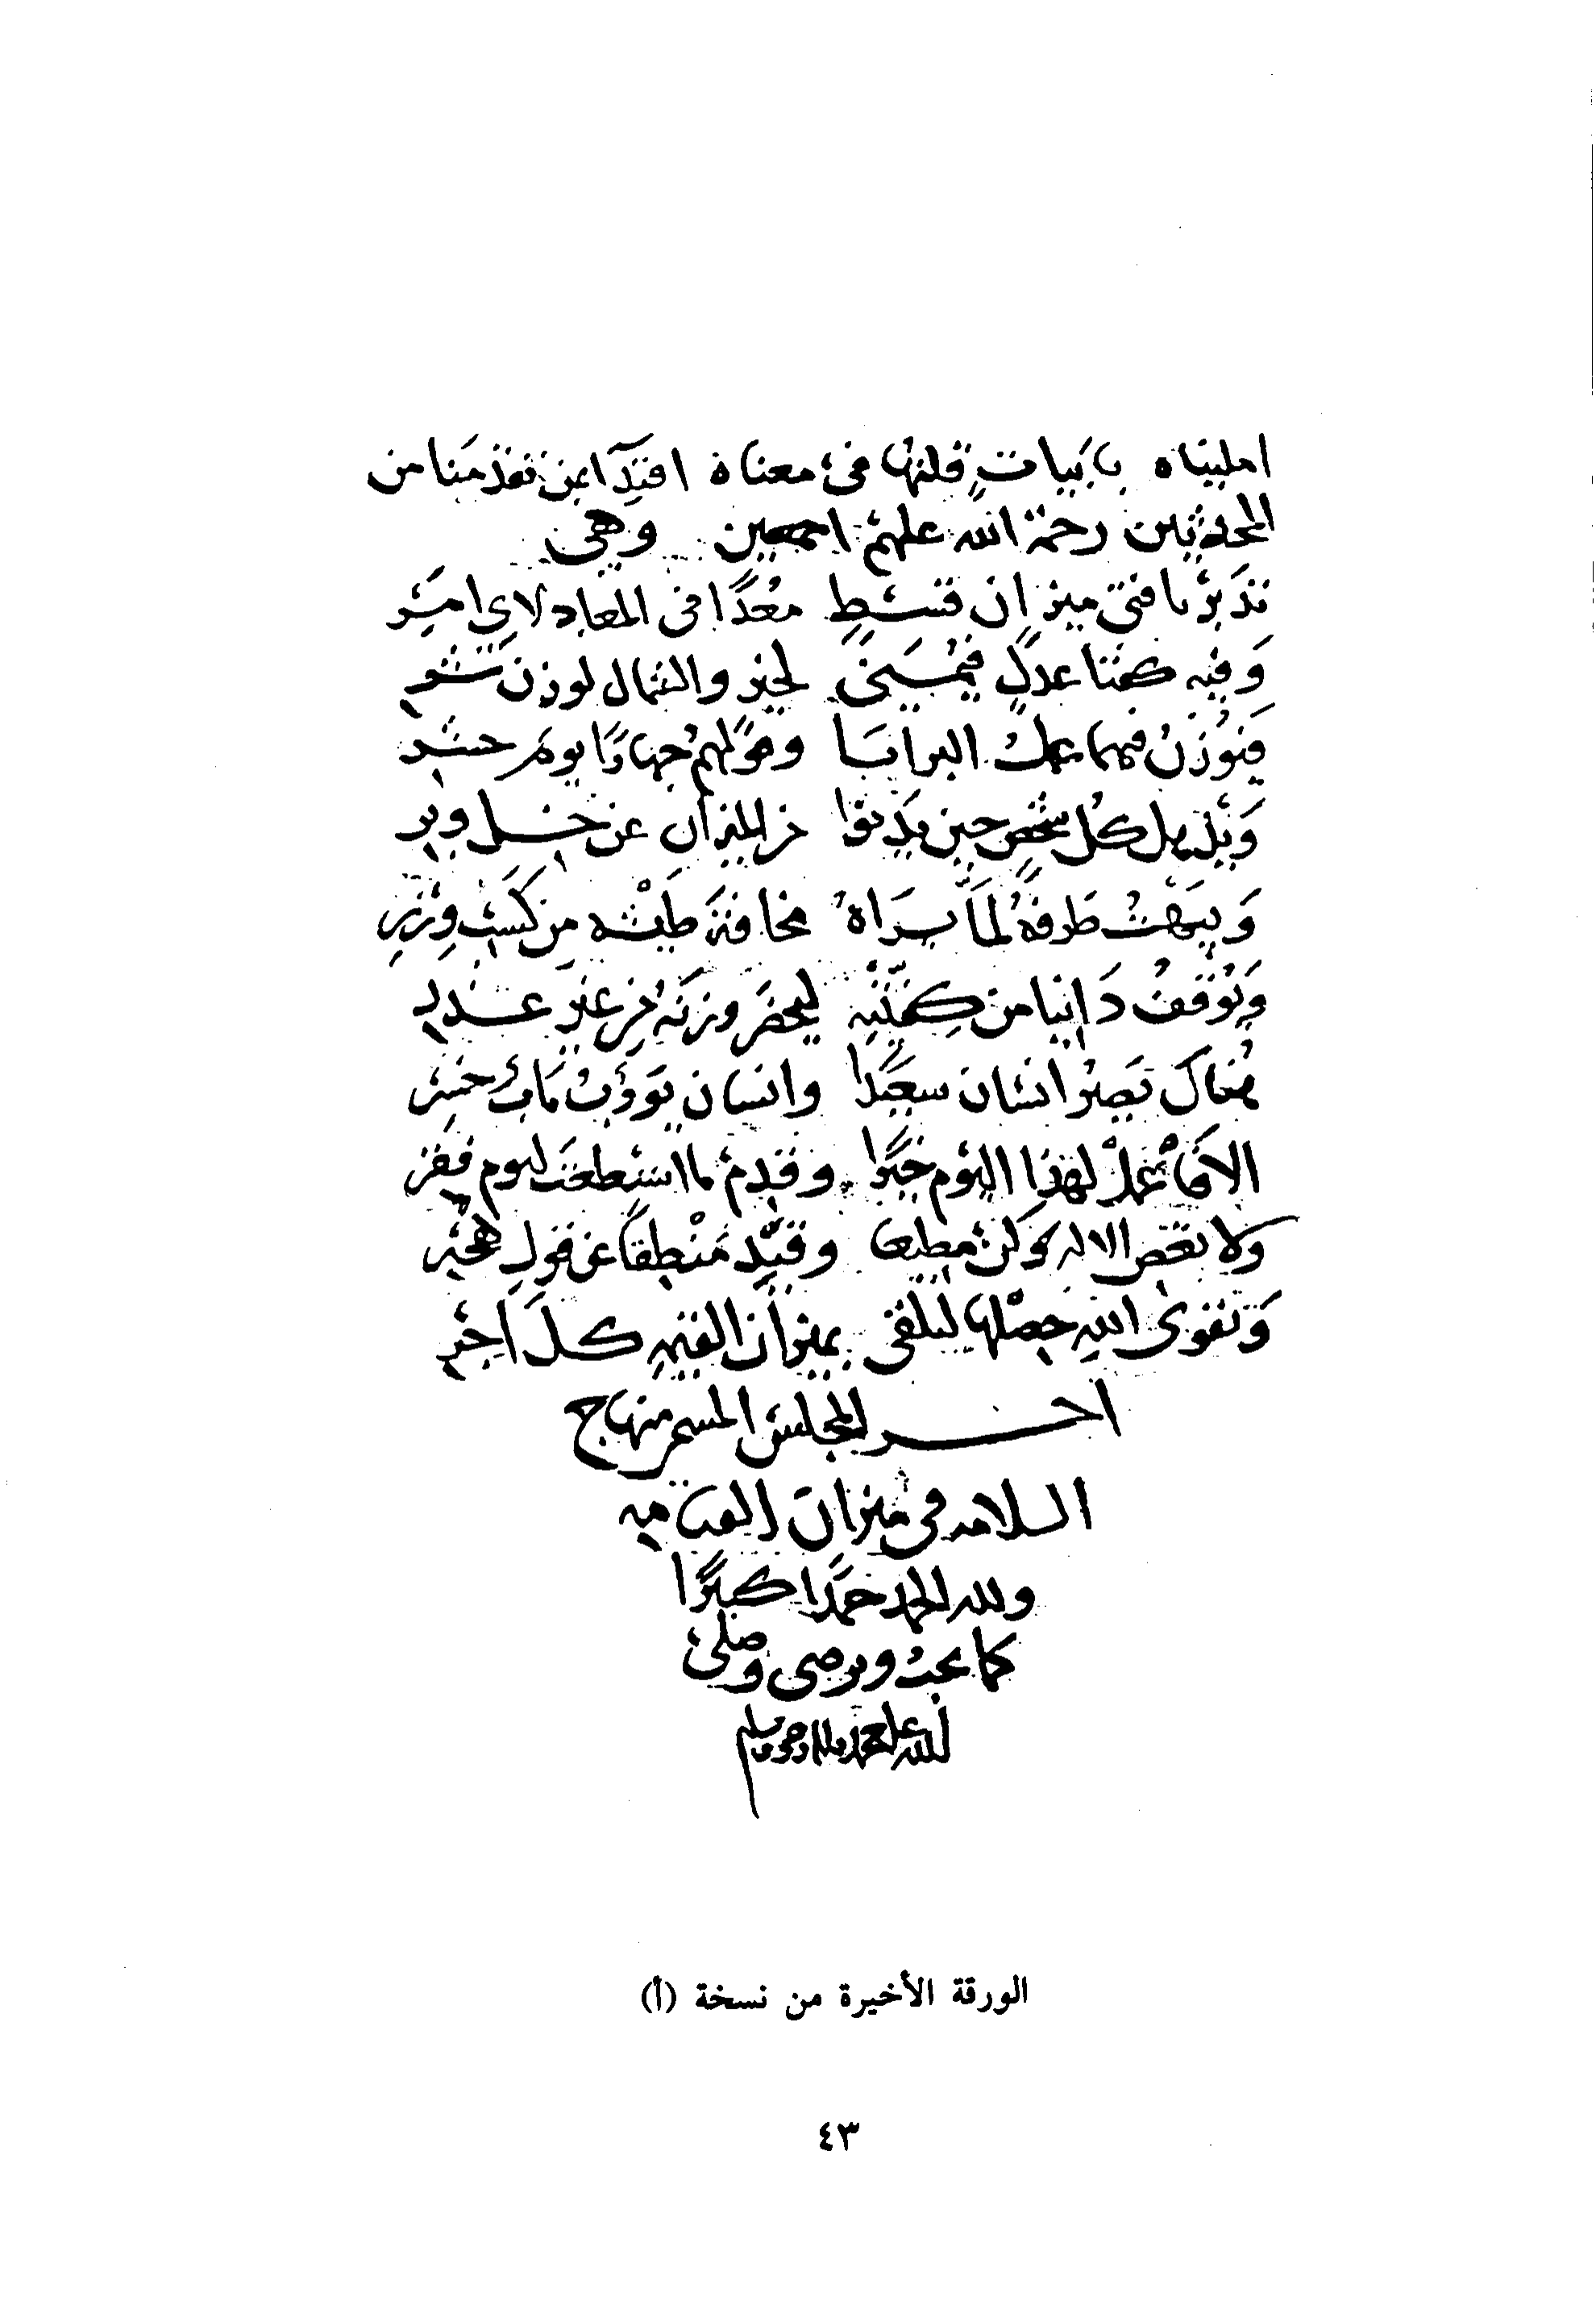 امليناه بابيات قلتها في معناه اقتدآ بمن تقدمنا من
المحدثين رحمة الله عليهم اجمعين وهي
تدبر يا فتى ميزان قسط معدا في المعاد لاي امر
وفيه كفتا عدل فيمنى لخير والشمال لوزن شر
فتوزن فيهما عمل البرايا وحولهم جهارا يوم حشر
ويذهل كل شخص حين يدنوا من الميزان عن خل وبر
ويبهت طرفه لما يراه مخافة طيشه من كسب وزر
ويوقف دانيا من كفتيه ليحضر وزنه من غير غدر
هناك يصير انسان سعيدا وانسان يؤوب مآب خسر
الا فاعمل لهذا اليوم خيرا وقدم ما استطعت ليوم فقر
ولا تعص الاله وكن مطيعا وقيد منطقا عن قول هجر
وتقوى الله حصلها لتلقى بميزان القيمة كل اجر
اخر المجلس المسمى منهاج
السلامه في ميزان القيامه
ولله الحمد حمدا كبيرا
كما يحب ويرضى وصلى
الله على محمد واله وصحبه وسلم
الورقة الأخيرة من نسخة (أ)
٤٣